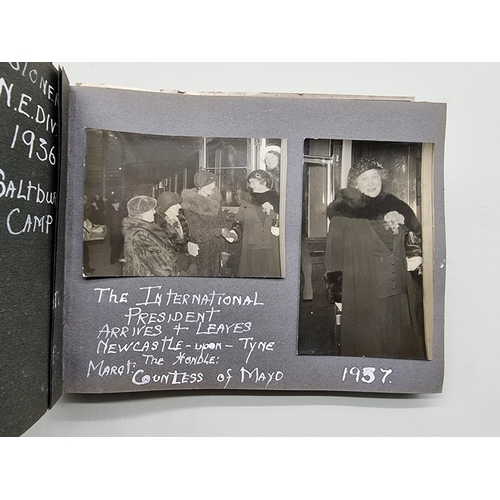 SIONER
N.E.DIV.
1936
SALTBURN
CAMP
THE INTERNATIONAL
PRESIDENT
ARRIVES + LEAVES
NEWCASTLE - UPON - TYNE
MARGT: THE HONBLE:
COUNTESS OF MAYO
1937.